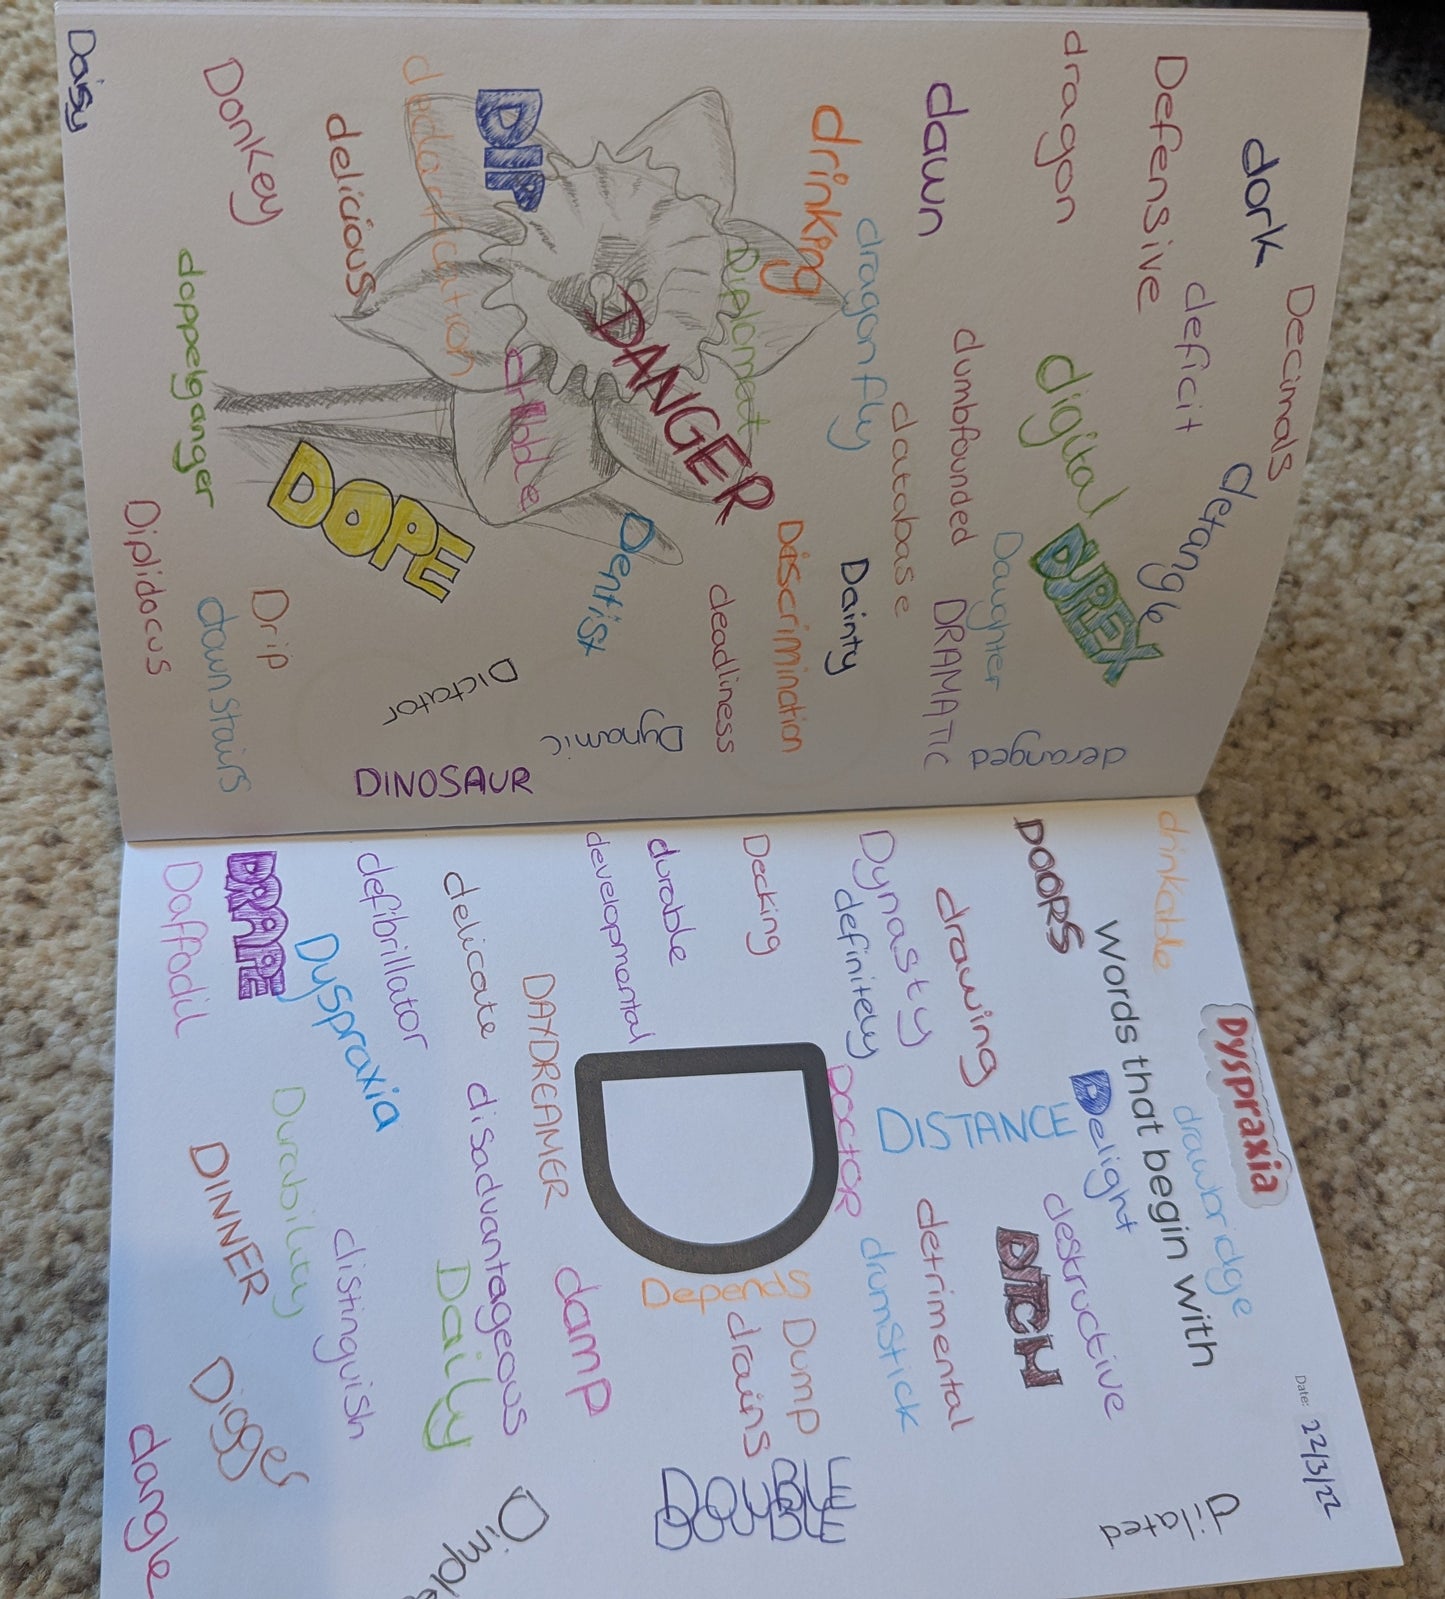 Decimals
dork
deficit
detangle
Defensive
dragon
digital
DUREX
deranged
dawn
dumbfounded
Daughter
DRAMATIC
database
dragonfly
drinking
Dainty
Diplomat
Discrimination
DANGER
deadliness
DIP
Dentist
Dynamic
dribble
dedication
Dictator
DINOSAUR
delicious
DOPE
Donkey
Drip
downstairs
doppelganger
Diplidocus
Daisy
Dyspraxia
Date: 22/3/22
drinkable
drawbridge
words that begin with
dilated
DOORS
Delight
destructive
drawing
DISTANCE
DITCH
Dynasty
detrimental
definitely
DOCTOR
drumstick
Decking
D
Dump
DOUBLE
DOUBLE
durable
Depends
drains
developmental
DAYDREAMER
damp
delicate
disadvantageous
Dimple
defibrillator
Daily
Dyspraxia
distinguish
DRAPE
Durability
DINNER
Digger
Daffodil
dangle